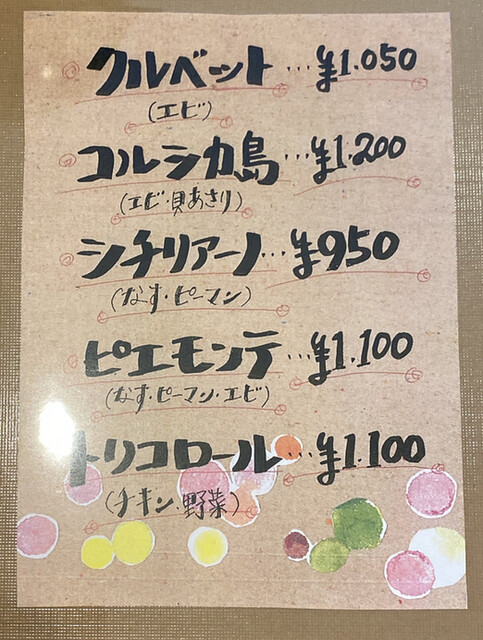 クルベット…¥1.050
(エビ)
コルシカ島…¥1.200
(エビ・貝あさり)
シチリアーノ…¥950
(なす・ピーマン)
ピエモンテ…¥1.100
(なす・ピーマン・エビ)
トリコロール…¥1.100
(チキン・野菜)